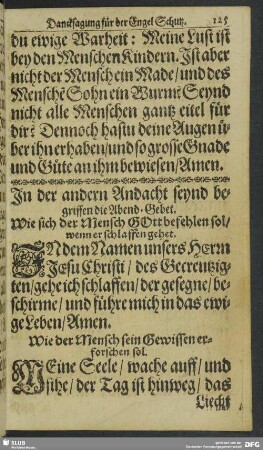 Dancksagung für der Engel Schutz. 125
du ewige Warheit: Meine Lust ist
bey den Menschen Kindern. Ist aber
nicht der Mensch ein Made/ und des
Menschẽ Sohn ein Wurm? Seynd
nicht alle Menschen gantz eitel für
dir? Dennoch hastu deine Augen ü-
ber ihn erhaben/ und so grosse Gnade
und Güte an ihm bewiesen/ Amen.
In der andern Andacht seynd be-
griffen die Abend-Gebet.
Wie sich der Mensch GOtt befehlen sol/
wenn er schlaffen gehet.
IN dem Namen unsers HErrn
JEsu Christi/ des Gecreutzig-
ten/ gehe ich schlaffen/ der gesegne/ be-
schirme/ und führe mich in das ewi-
ge Leben/ Amen.
Wie der Mensch sein Gewissen er-
forschen sol.
MEine Seele/ wache auff/ und
sihe/ der Tag ist hinweg/ das
Liecht
SLUB
DFG